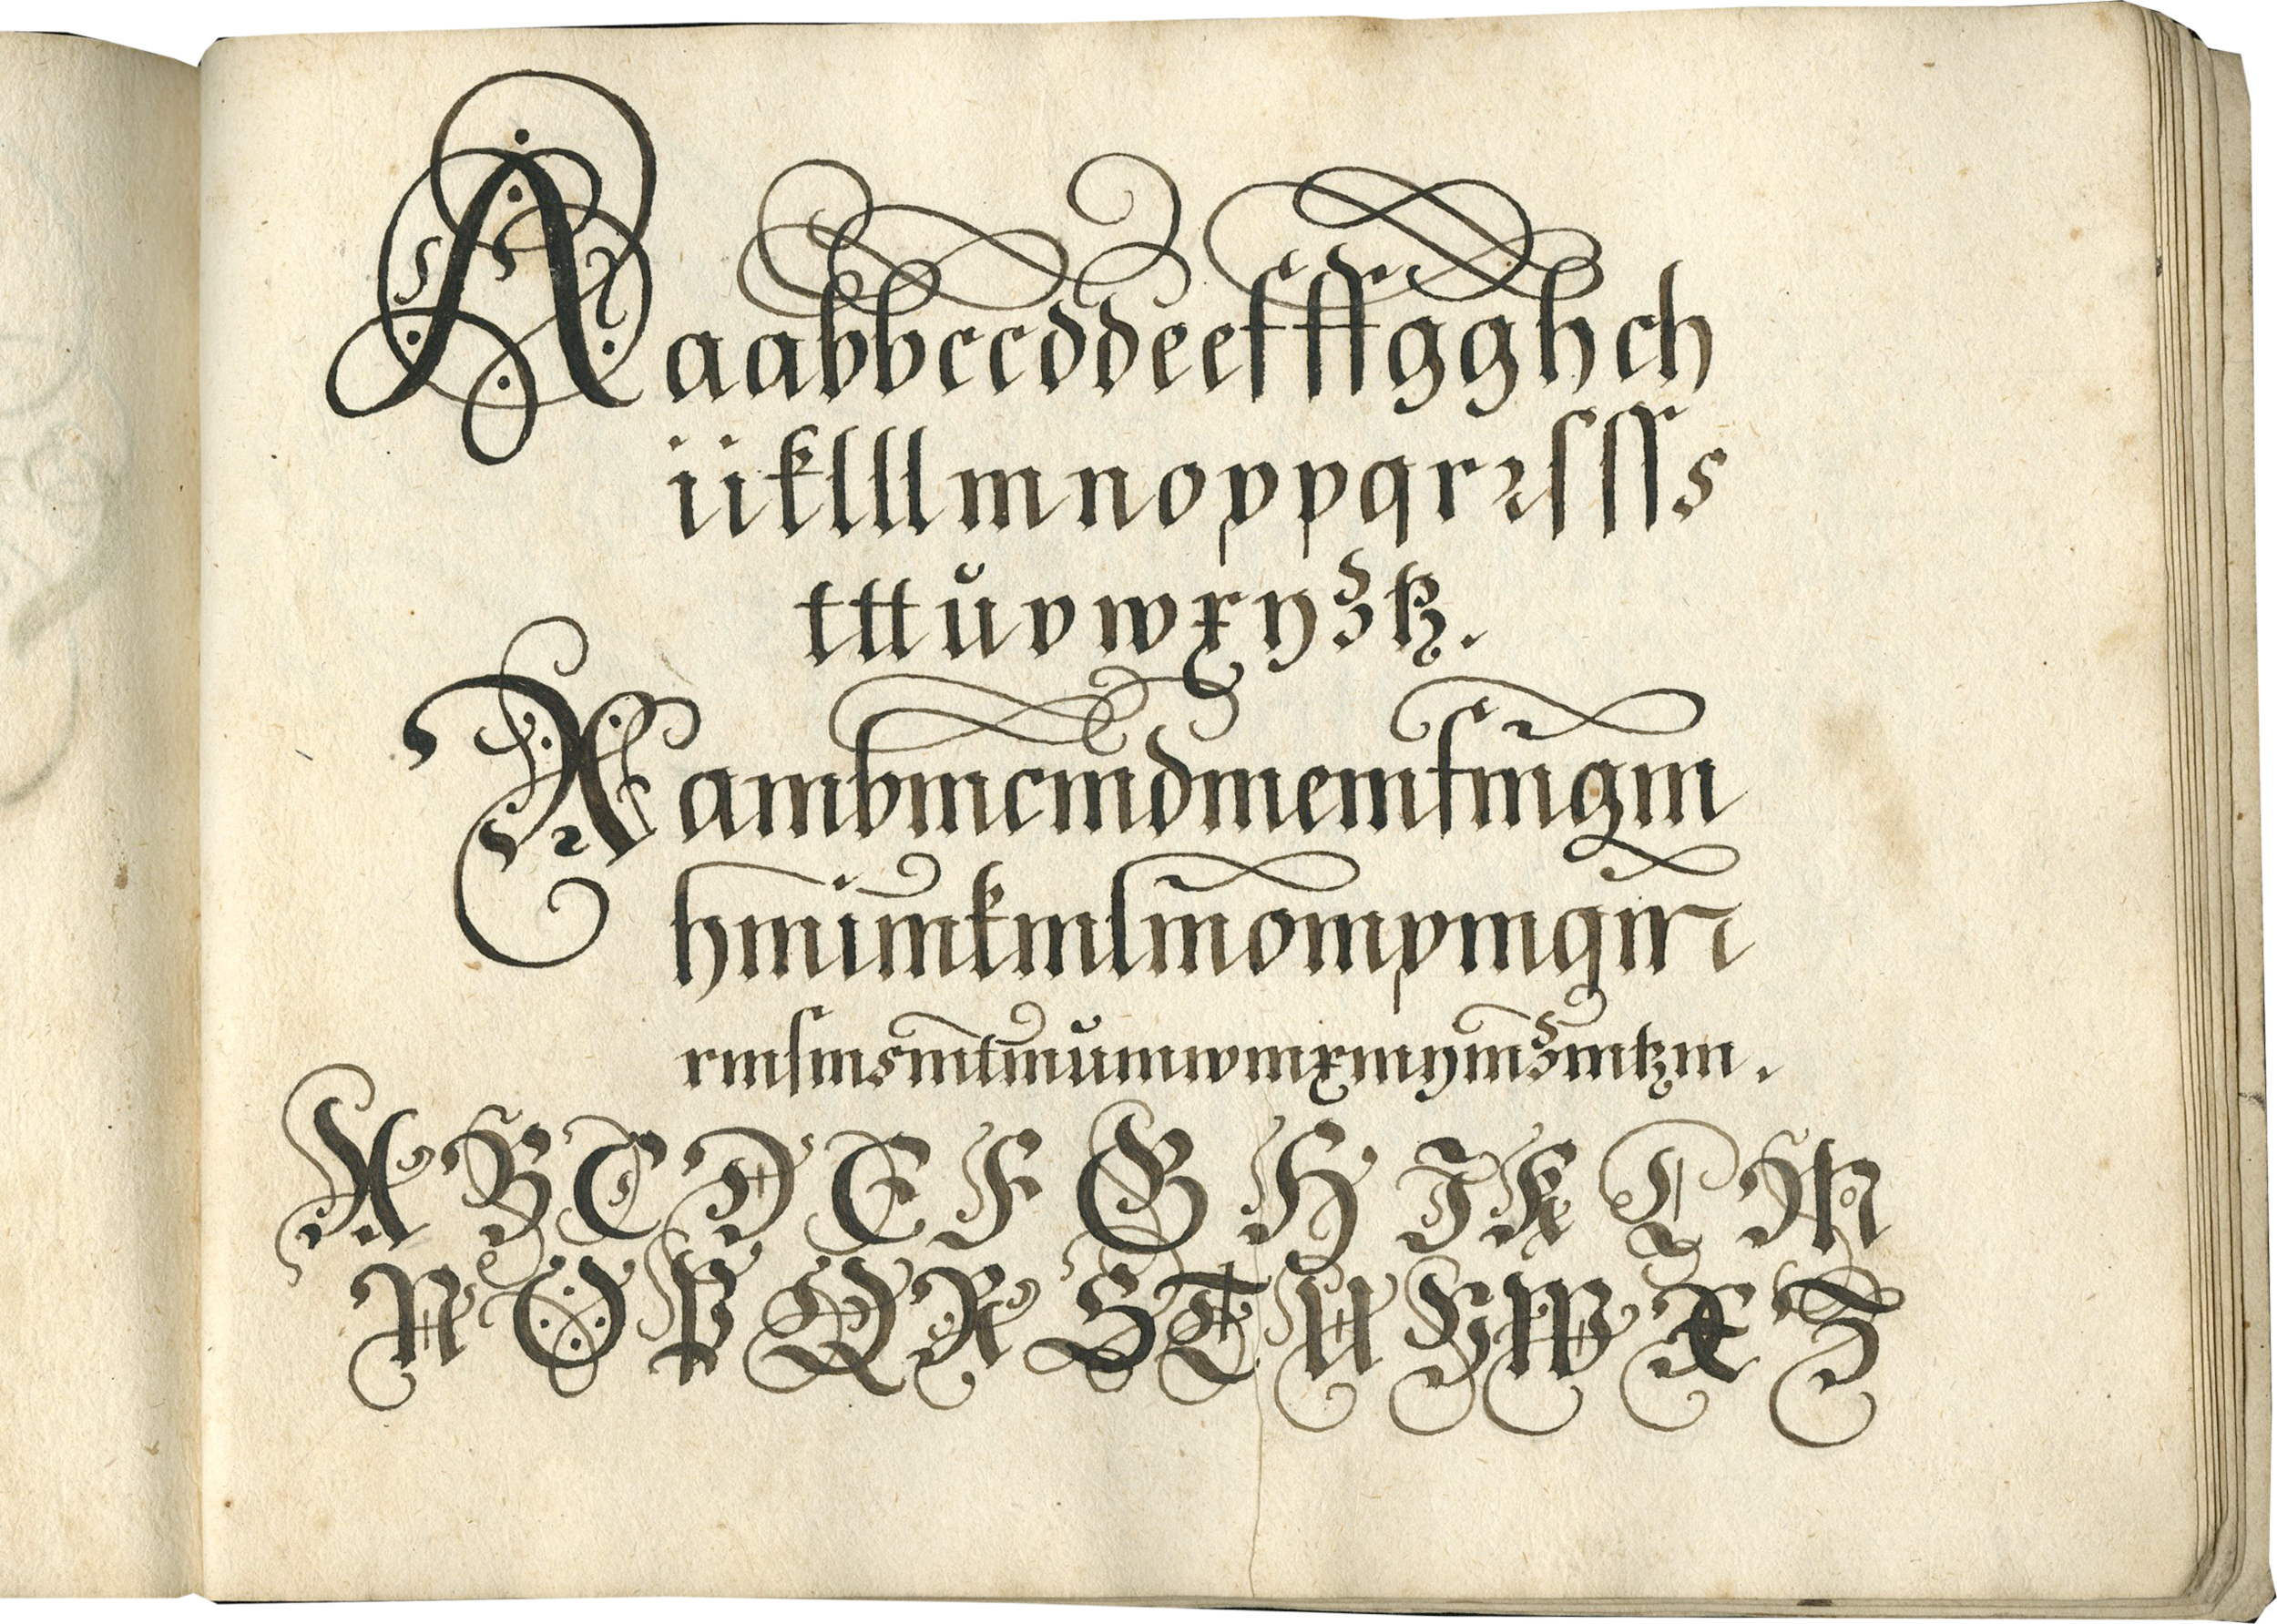 A a a b b c c d d e e f ff g g h ch
i i k l ll m n o p p q r ꝛ ſ ſſ s
t tt ŭ v w x y z tz.
A ambmcmdmemfmgm
hmimkmlmompmqmr
rmſmsmtmŭmwmxmymzmtzm.
A B C D E F G H I K L M
N O P Q R S T U V W X Z